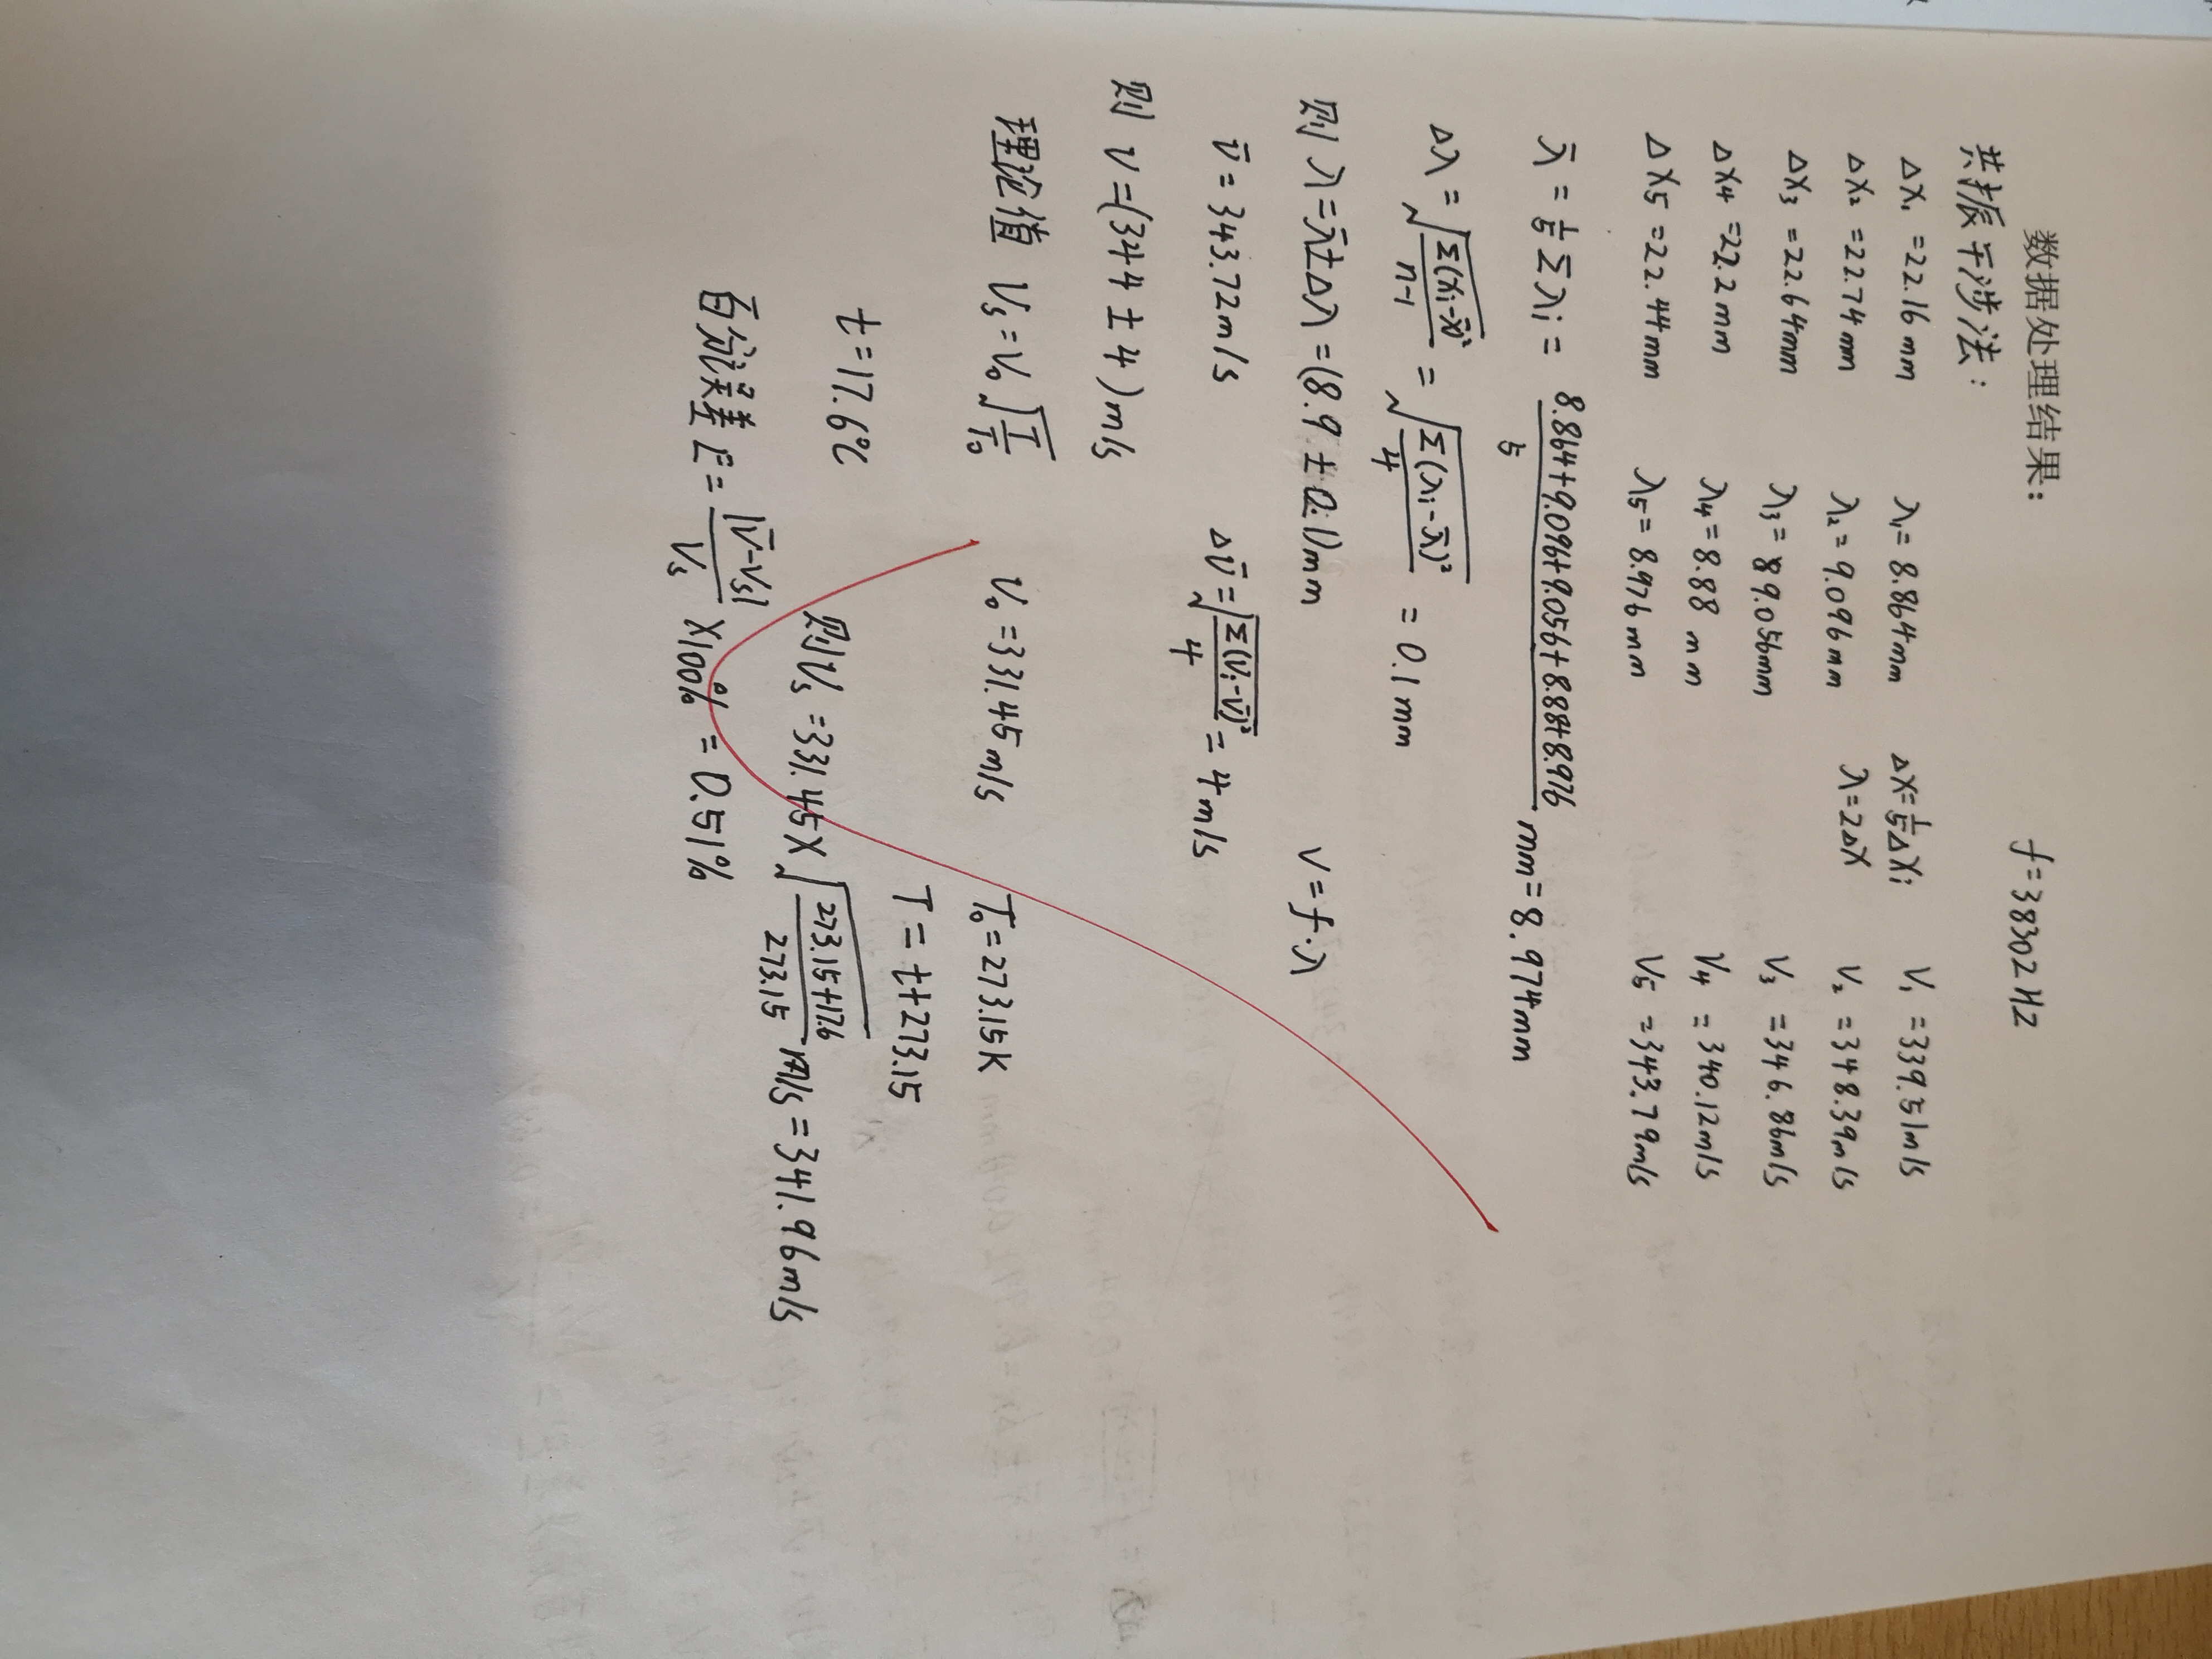 数据处理结果： f=38302HZ
共振干涉法：
Δx₁=22.16mm λ₁=8.864mm Δx=1/5Δxi V₁=339.51m/s
Δx₂=22.74mm λ₂=9.096mm λ=2Δx V₂=348.39m/s
Δx₃=22.64mm λ₃=9.056mm V₃=346.86m/s
Δx₄=22.2mm λ₄=8.88mm V₄=340.12m/s
Δx5=22.44mm λ5=8.976mm V5=343.79m/s
λ̄=1/5Σλi=(8.864+9.096+9.056+8.88+8.976)/5 mm=8.974mm
Δλ=√(Σ(xi-x̄)²/(n-1))=√(Σ(λi-λ̄)²/4)=0.1mm
则 λ=λ̄±Δλ=(8.9±0.1)mm V=f·λ
v̄=343.72m/s Δv̄=√(Σ(Vi-v̄)²/4)=4m/s
则 V=(344±4)m/s
理论值 Vs=V₀√(T/T₀) V₀=331.45m/s T₀=273.15K
T=t+273.15
t=17.6℃ 则Vs=331.45×√((273.15+17.6)/273.15) m/s=341.96m/s
百分误差 E=|v̄-Vs|/Vs ×100%=0.51%